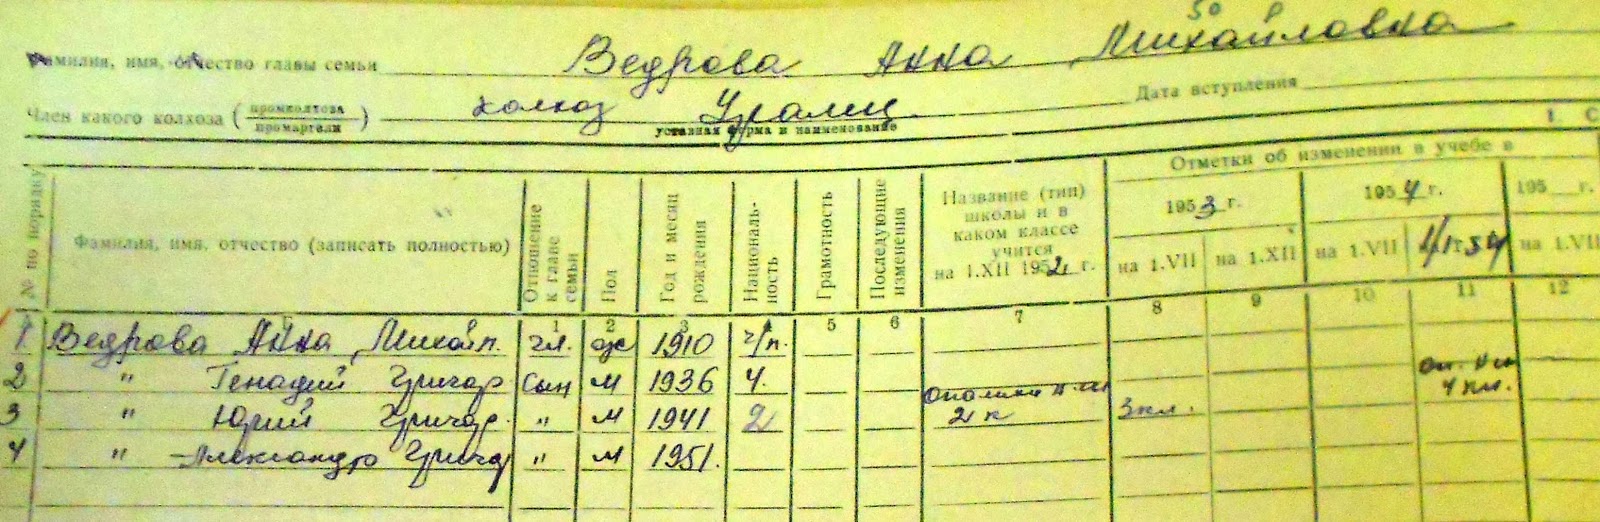 50
Фамилия, имя, отчество главы семьи Ведрова Анна Михайловна
Член какого колхоза (промколхоза / промартели) колхоз Уралец Дата вступления
уставная форма и наименование
I. С
№ по порядку Фамилия, имя, отчество (записать полностью) Отношение к главе семьи Пол Год и месяц рождения Националь-ность Грамотность Последующие изменения Название (тип) школы и в каком классе учится на 1.XII 1952 г. Отметки об изменении в учебе в
1953 г. 1954 г. 195 г.
на 1.VII на 1.XII на 1.VII 1/I 54 на 1.VII
Б 1 2 3 4 5 6 7 8 9 10 11 12
1 Ведрова Анна Михайл. гл. ж 1910 ч/п.
2 " Генадий Григор сын м 1936 4. 4 кл.
3 " Юрий Григор. " м 1941 2 2 к 3 кл.
4 " Александр Григор " м 1951.